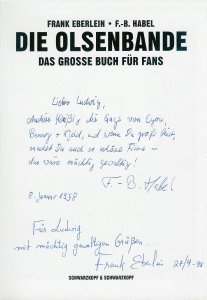 FRANK EBERLEIN • F.-B. HABEL
DIE OLSENBANDE
DAS GROSSE BUCH FÜR FANS
Lieber Ludwig,
studiere die Gags von Egon,
Benny + Kjeld, und wenn Du groß bist,
machst Du auch so schöne Filme –
das wäre mächtig gewaltig!
F.-B. Habel
8. Januar 1998
Für Ludwig
mit mächtig gewaltigen Grüßen
Frank Eberlein 27/4-98
SCHWARZKOPF & SCHWARZKOPF